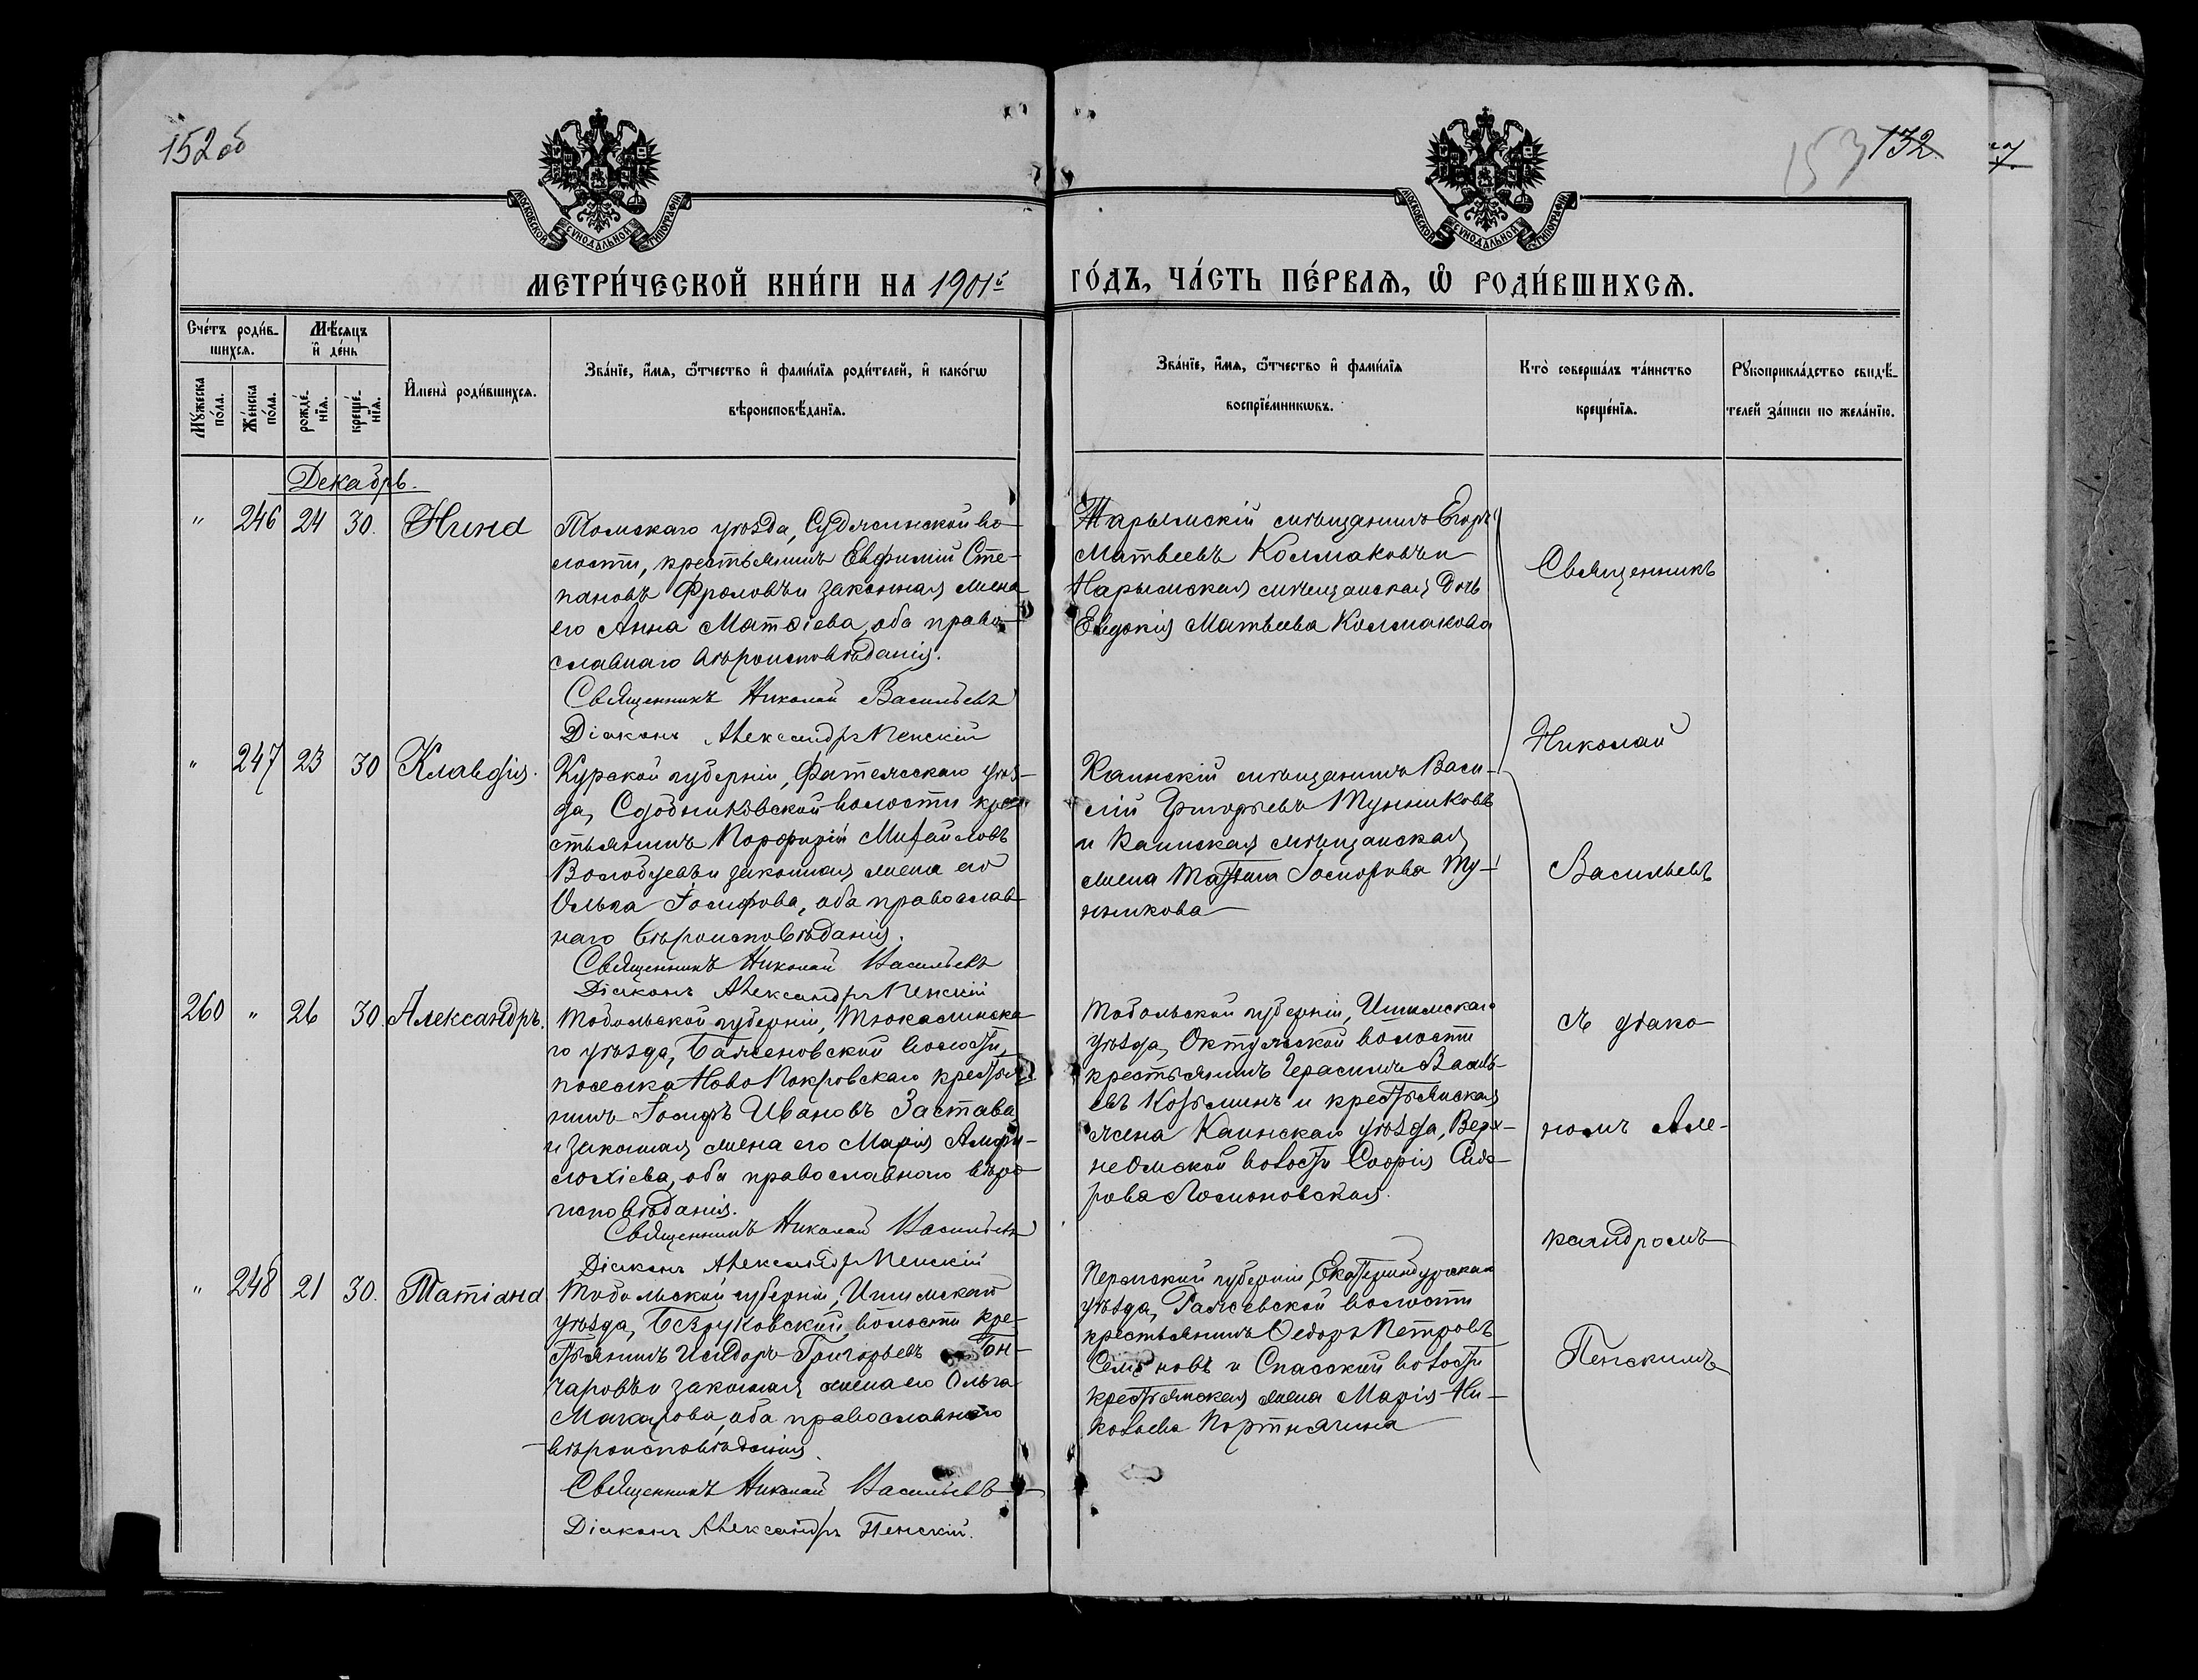 152 об
153 132
МОСКОВСКОЙ СѴНОДАЛЬНОЙ ТИПОГРАФІИ
МОСКОВСКОЙ СѴНОДАЛЬНОЙ ТИПОГРАФІИ
МЕТРИ́ЧЕСКОЙ КНИ́ГИ НА 1901й ГО́ДЪ, ЧА́СТЬ ПЕ́РВАѦ, Ѡ РОДИ́ВШИХСѦ.
Сче́тъ роди́в-
шихсѧ.
Мꙋжеска по́ла.
Же́нска по́ла.
Мѣ́сѧцъ
и҆ де́нь
рожде́нїѧ.
креще́нїѧ.
И҆мена̀ роди́вшихсѧ.
Зва́нїе, и҆́мѧ, ѻ҆́тчество и҆ фами́лїѧ роди́телей, и҆ како́гѡ
вѣроисповѣ́данїѧ.
Зва́нїе, и҆́мѧ, ѻ҆́тчество и҆ фами́лїѧ
воспрїе́мникѡвъ.
Кто̀ соверша́лъ та́инство
креще́нїѧ.
Рꙋкоприкла́дство свидѣ́-
телей за́писи по жела́нїю.
Декабрь.
" 246 24 30. Нина
Томскаго уѣзда, Судженской во-
лости, крестьянинъ Евфимій Сте-
пановъ Фроловъ и законная жена
его Анна Матѳіева, оба право-
славнаго вѣроисповѣданія.
Священникъ Николай Васильевъ
Діаконъ Александръ Пенскій
Нарымскій мѣщанинъ Егоръ
Матвеевъ Колмаковъ и
Нарымская мѣщанская дочь
Евдокія Матвеева Колмакова
" 247 23 30 Клавдія.
Курской губерніи, Фатежскаго уѣз-
да, волости кре-
стьянинъ Порфирій Михайловъ
и законная жена его
Ольга Іосифова, оба православ-
наго вѣроисповѣданія.
Священникъ Николай Васильевъ
Діаконъ Александръ Пенскій
Каинскій мѣщанинъ Васи-
лій Григорьевъ
и Каинская мѣщанская
жена
260 " 26 30. Александръ.
Тобольской губерніи, Тюкалинска-
го уѣзда, Баженовской волости,
поселка Ново Покровскаго крестья-
нинъ Іосифъ Ивановъ Застава
и законная жена его Марія Амфи-
лохіева, оба православнаго вѣро-
исповѣданія.
Священникъ Николай Васильевъ
Діаконъ Александръ Пенскій
Тобольской губерніи, Ишимскаго
уѣзда, волости
крестьянинъ Герасимъ Василь-
евъ Козьминъ и крестьянская
жена Каинскаго уѣзда, Верх-
неОмской волости Софія Сидо-
рова
" 248 21 30. Татіана
Тобольской губерніи, Ишимскаго
уѣзда, Безруковской волости кре-
стьянинъ Исидоръ Григорьевъ Гон-
чаровъ и законная жена его Ольга
Макарова, оба православнаго
вѣроисповѣданія.
Священникъ Николай Васильевъ
Діаконъ Александръ Пенскій.
Пермской губерніи, Екатеринбургскаго
уѣзда, волости
крестьянинъ Ѳедоръ Петровъ
Семеновъ и Спасской волости
крестьянская жена Марія Ни-
колаева Портнягина
Священникъ
Николай
Васильевъ
съ діако-
номъ Але-
ксандромъ
Пенскимъ